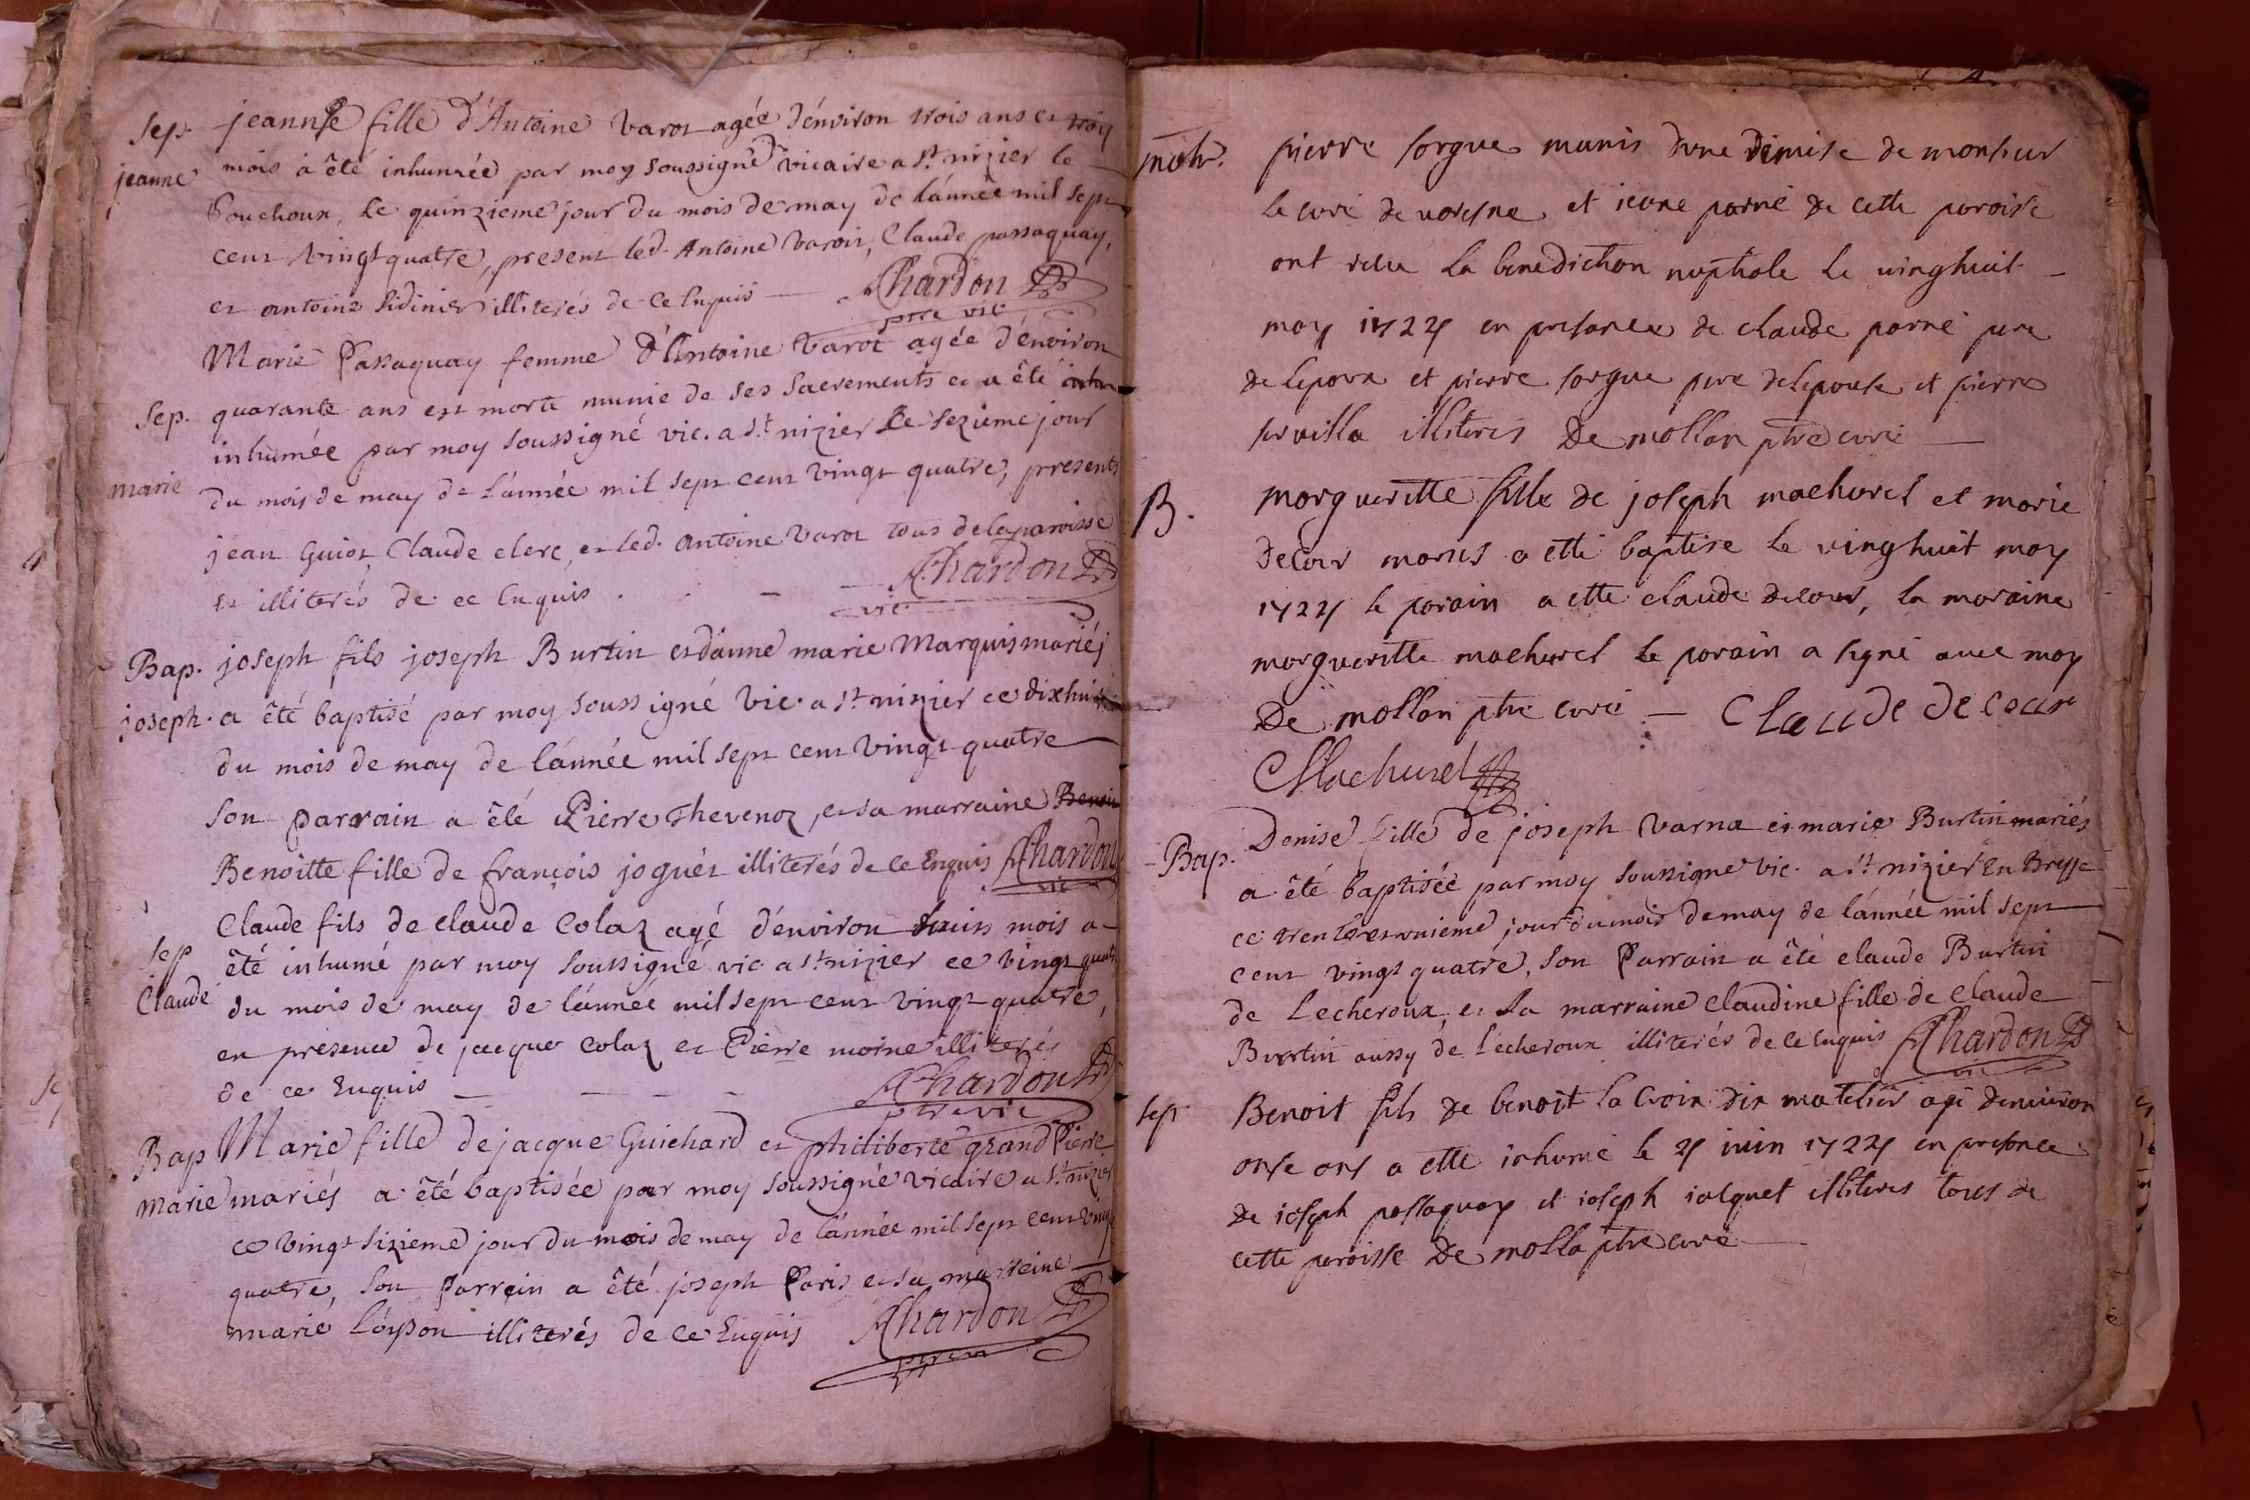 Sep. jeanne fille d'Antoine Varot agée d'énviron trois ans et troiy
jeanne mois a êté inhumée par moy soussigné vicaire a st nizier le
Bouchoux, le quinzieme jour du mois de may de l'année mil sept
cent vingt quatre, present led. Antoine Varot, Claude passaquay,
et antoine illiterés de ce Enquis Chardon
ptre vic
Marie Passaquay femme d'Antoine Varot agée d'énviron
Sep. quarante ans est morte munie de ses Sacrements et a êté
marie inhumée par moy soussigné vic. a st. nizier le sezieme jour
du mois de may de l'année mil sept cent vingt quatre, presents
jean Guiot, Claude clerc, et led. antoine Varot tous de la paroisse
et illiterés de ce Enquis. Chardon
vic
Bap. joseph fils joseph Burtin et d'anne marie Marquis mariéj
joseph. a êté baptisé par moy soussigné vic. a st nizier ce dixhuit
du mois de may de l'année mil sept cent vingt quatre
son parrain a êté Pierre Thevenoz, et sa marraine Benoi
Benoitte fille de françois joguet illiterés de ce Enquis Chardon
vic
Claude fils de claude Colaz agé d'énviron huit mois a
sep êté inhumé par moy soussigné vic a st nizier ce vingt quatr
Claude du mois de may de l'année mil sept cent vingt quatre,
en présence de jacque Colaz et Pierre moine illiterés
de ce Enquis Chardon
ptre vic
Bap Marie fille de jacque Guichard et philiberte grand Pierre
Marie mariés a êté baptisée par moy soussigné vicaire a st nizier
ce vingt sixieme jour du mois de may de l'année mil sept cent vingt
quatre, son Parrain a êté joseph Paris et sa marreine
marie Loyson illiterés de ce Enquis Chardon
ptre vic
mar. pierre sorgue munis dune dimise de monsieur
le curé de et ieane parné de cette paroise
ont recu la benediction nuptiale le vinghuit
may 1724 en presance de claude parné pere
de lepoux et pierre sorgue pere de lepouse et pierre
illiteres De mollan ptre curé
B. margueritte fille de joseph machurel et marie
decour mariés a etté baptise le vinghuit may
1724 le parain a etté claude decour, la maraine
margueritte machurel le parain a signé avec moy
De mollan ptre curé — Claude decour
CMachurel
Denise fille de joseph Varna et marie Burtin mariés
Bap. a êté baptisée par moy soussigné vic. a st nizier En Bresse
ce trente et unieme jour du mois de may de l'année mil sept
cent vingt quatre, son Parrain a êté claude Burtin
de Lecheroux, et la marraine claudine fille de claude
Burtin aussy de lécheroux illiterés de ce Enquis Chardon
vic
sep Benoit fils de benoit la croix dit matelier agé denuiron
onse ans a etté inhumé le 4 iuin 1724 en presance
de ioseph passaquay et ioseph iasquet illiteres tous de
cette paroisse De molla ptre curé